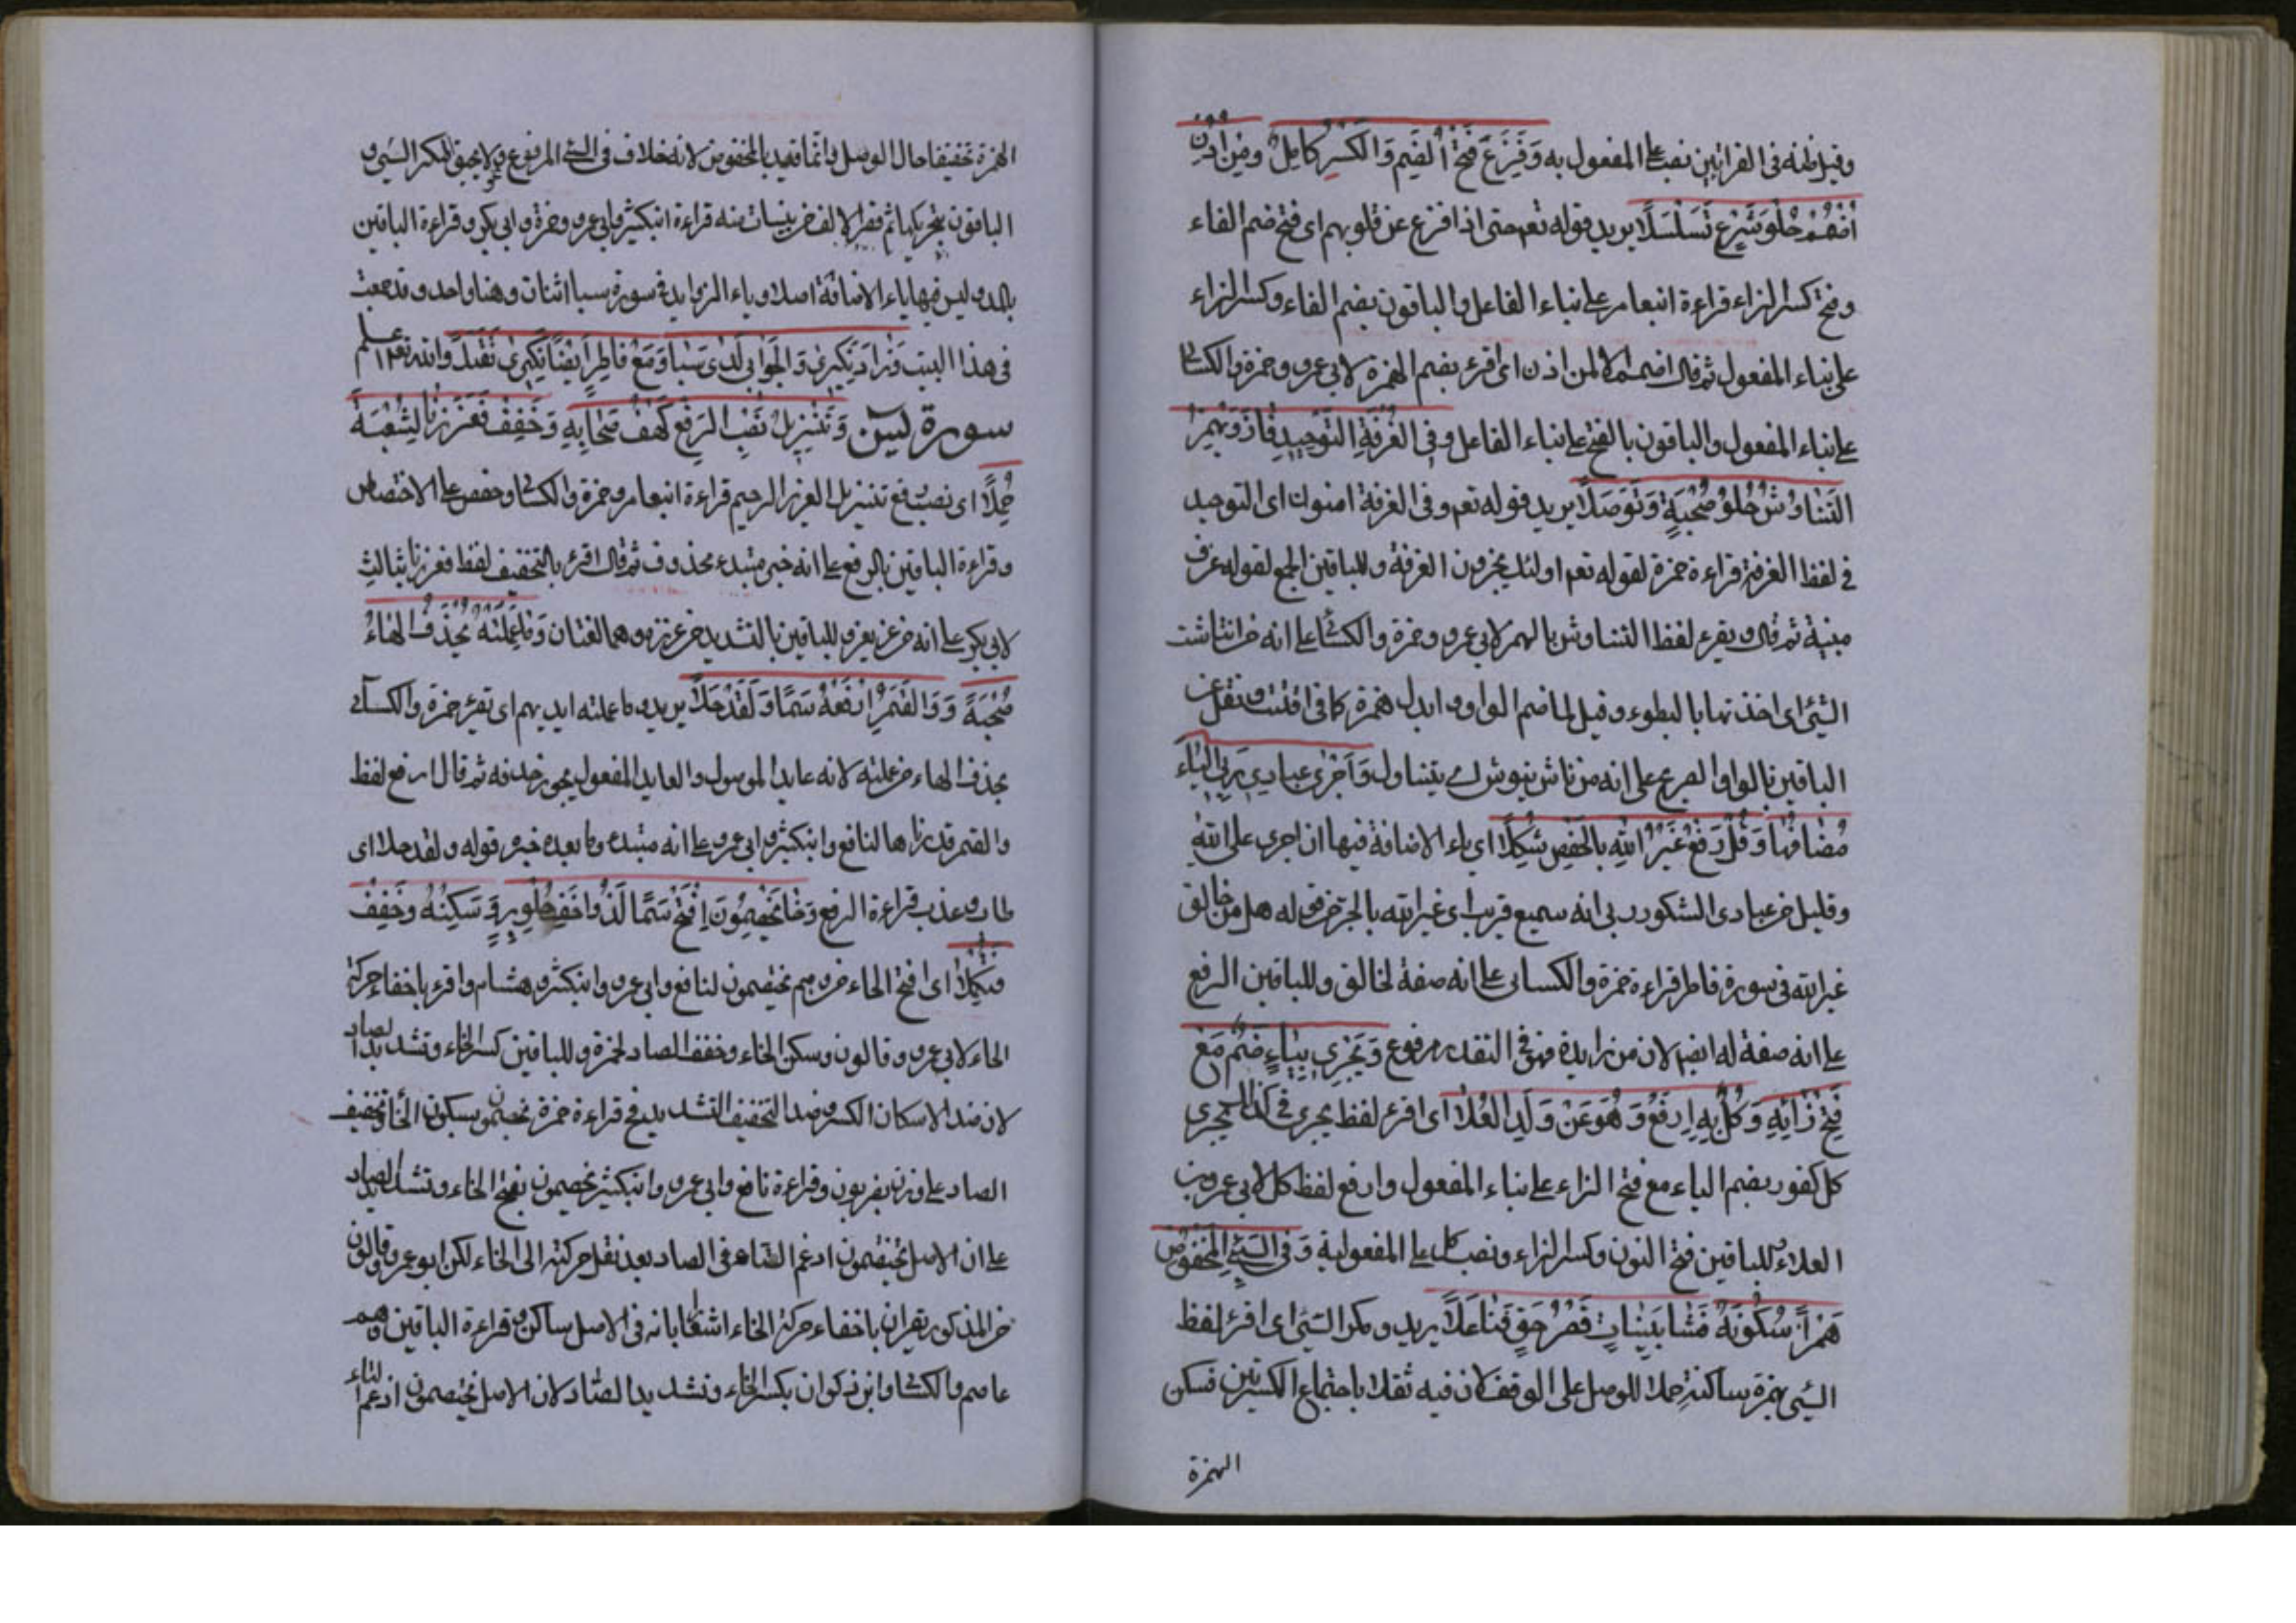 وقيل ظنه في القراتين نصب على المفعول به وَفُزِّعَ فَتْحُ الضَّمِّ وَالْكَسْرِ كَامِلٌ وَمَنْ اُذِنَ
اضْمُمْ حُلْوَ شَرْعٍ تَسَلْسَلَا يريد قوله تعم حتى اذا فزع عن قلوبهم اى فتح ضم الفاء
وفتح كسر الزاء قراءة ابنعامر على بناء الفاعل والباقون بضم الفاء وكسر الزاء
على بناء المفعول ثم قال اضمم الا لمن اذن اى اقرء بضم الهمزة لابي عمرو وحمزة والكسائي
على بناء المفعول والباقون بالفتح على بناء الفاعل وَفِي الْغُرْفَةِ التَّوْحِيدُ فَازَ وَيُهْمَزُ
التَّنَاوُشُ حُلْوًا صُحْبَةً وَتَوَصُّلَا يريد قوله تعم وفي الغرفة امنون اى التوحيد
في لفظ الغرفة قراءة حمزة لقوله تعم اولئك يجزون الغرفة وللباقين الجمع لقوله غرف
مبنية ثم قال ويقرء لفظ التناوش بالهمز لابي عمرو وحمزة والكسائي على انه من انتاشت
الشئ اى اخذتها بالبطوء وقيل لما ضم الواو ابدل همزة كما في اقتت ونقل عن
الباقين بالواو الصريح على انه من ناش ينوش اى يتناول وَأَجْرِيَ عِبَادِيْ رَبِّيَ الْيَاءُ
مُضَافُهَا وَقُلْ رَفْعُ غَيْرُ اللهِ بِالْخَفْضِ شُكِّلَا اى ياء الاضافة فيها ان اجرى على الله
وقليل من عبادى الشكور ربي انه سميع قريب اى غير الله بالجر من قوله هل من خالق
غير الله في سورة فاطر قراءة حمزة والكسائى على انه صفة لخالق وللباقين الرفع
على انه صفة له ايضم لان من زايدة فهو في التقدير مرفوع وَنَجْزِي بِيَاءٍ ضُمَّ مَعْ
فَتْحِ زَائِهِ وَكُلُّ بِهِ ارْفَعْ وَهُوَ عَنْ وَلَدِ الْعُلَا اى اقرء لفظ يجزى في كذلك يجزى
كل كفور بضم الياء مع فتح الزاء على بناء المفعول وارفع لفظ كل لابي عمرو بن
العلاء وللباقين فتح النون وكسر الزاء ونصب كل على المفعولية وَفِي السَّيِّئِ الْمَخْفُوضِ
هَمْزًا سُكُونُهُ فَشَا بَيِّنَاتٍ قَصْرُ حَقٍّ فَتًى عَلَا يريد ومكر السيئ اى اقرء لفظ
السيئ بهمزة ساكنة حملا للوصل على الوقف لان فيه ثقلا باجتماع الكسرتين فسكن
الهمزة
الهمزة تخفيفا حال الوصل وانما قيد بالمخفوض لانه خلاف في السئ المرفوع ولا يحيق المكر السيئ و
الباقون بتحريكها ثم قصر الالف من بينات منه قراءة ابنكثير وابي عمرو وحمزة وابي بكر وقراءة الباقين
بالمد وليس فيها ياء الاضافة اصلا وياء الزوايد في سورة سبا اثنان وهنا واحد وقد جمعت
في هذا البيت وَزَادَ نَكِيرِي وَالْجَوَابِي لَدَى سَبَا وَمَعْ فَاطِرٍ أَيْضًا نَكِيرِي تَقَبَّلَا والله تعم اعلم
سورة يس وَتَنْزِيلُ نَصْبُ الرَّفْعِ كَهْفُ صِحَابِهِ وَخَفِّفْ فَعَزَّزْنَا لِشُعْبَةَ
مُجْمِلَا اى نصب رفع تنزيل العزيز الرحيم قراءة ابنعامر وحمزة والكسائي وحفص على الاختصاص
وقراءة الباقين بالرفع على انه خبر مبتدء محذوف ثم قال اقرء بالتخفيف لفظ فعززنا بثالث
لابي بكر على انه من عز يعز وللباقين بالتشديد من عزز وهما لغتان وَمَا عَمِلَتْهُ يَحْذِفُ الْهَاءَ
صُحْبَةٌ وَوَالْقَمَرُ ارْفَعْهُ سَمَا وَلَقَدْ حَلَا يريد وما عملته ايديهم اى تقرء حمزة والكسائى
بحذف الهاء من عملته لانه عايد الموصول والعايد المفعول يجوز حذفه ثم قال ارفع لفظ
والقمر قدرناها لنافع وابنكثير وابي عمرو على انه مبتدء وما بعده خبره قوله ولقد حلا اى
طاب وعذب قراءة الرفع وَخَا يَخْصِمُونَ افْتَحْ سَمَا لُذْ وَاخْفِ حُلْوَ بَرٍّ وَسَكِّنْهُ وَخَفِّفْ
فَتُكْمِلَا اى افتح الخاء من وهم يخصمون لنافع وابي عمرو وابنكثير وهشام واقرء باخفاء حركة
الخاء لابي عمرو وقالون وسكن الخاء وخفف الصاد لحمزة وللباقين كسر الخاء وتشديد الصاد
لان ضد الاسكان الكسر وضد التخفيف التشديد في قراءة حمزة يخصمون بسكون الخاء وتخفيف
الصاد على وزن يضربون وقراءة نافع وابي عمرو وابنكثير يخصمون بفتح الخاء وتشديد الصاد
على ان الاصل يختصمون ادغم التاء في الصاد بعد نقل حركته الى الخاء لكن ابو عمرو وقالون
من المذكور يقران باخفاء حركة الخاء بانه في الاصل ساكن وقراءة الباقين وهم
عاصم والكسائي وابن ذكوان بكسر الخاء وتشديد الصاد لان الاصل يختصمون ادغم التاء